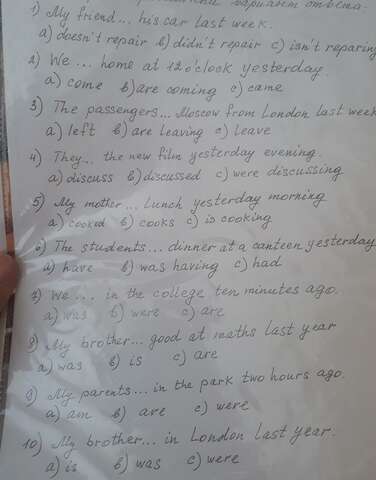 вариант ответа.
1) My friend... his car last week.
a) doesn't repair b) didn't repair c) isn't reparing
2) We ... home at 12 o'clock yesterday.
a) come b) are coming c) came
3) The passengers... Moscow from London last week
a) left b) are leaving c) leave
4) They... the new film yesterday evening.
a) discuss b) discussed c) were discussing
5) My mother... lunch yesterday morning
a) cooked b) cooks c) is cooking
6) The students... dinner at a canteen yesterday
a) have b) was having c) had
7) We ... in the college ten minutes ago.
a) was b) were c) are
8) My brother... good at maths last year
a) was b) is c) are
9) My parents... in the park two hours ago.
a) am b) are c) were
10) My brother... in London last year.
a) is b) was c) were